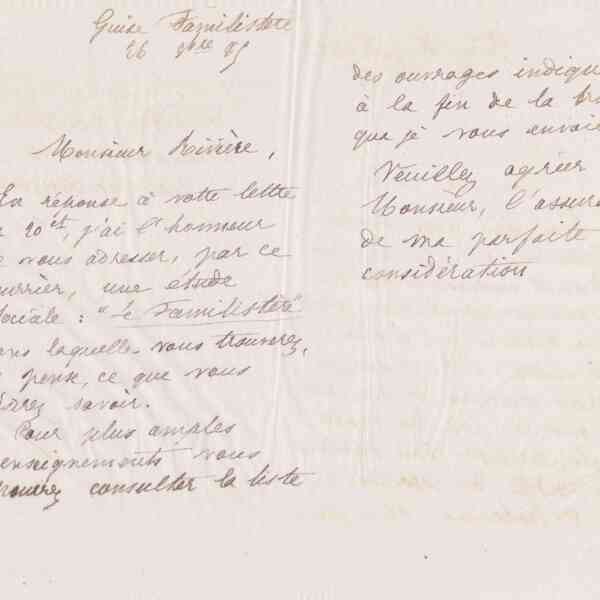 Guise Familistère
26 9bre 95
Monsieur Rivière,
En réponse à votre lettre
20 ct, j'ai l'honneur
vous adresser, par ce
courrier, une étude
sociale : "Le Familistère"
dans laquelle vous trouverez,
pense, ce que vous
désirez savoir.
Pour plus amples
renseignements vous
pourrez consulter la liste
des ouvrages indiqu
à la fin de la bro
que je vous envoie
Veuillez agréer
Monsieur, l'assura
de ma parfaite
considération